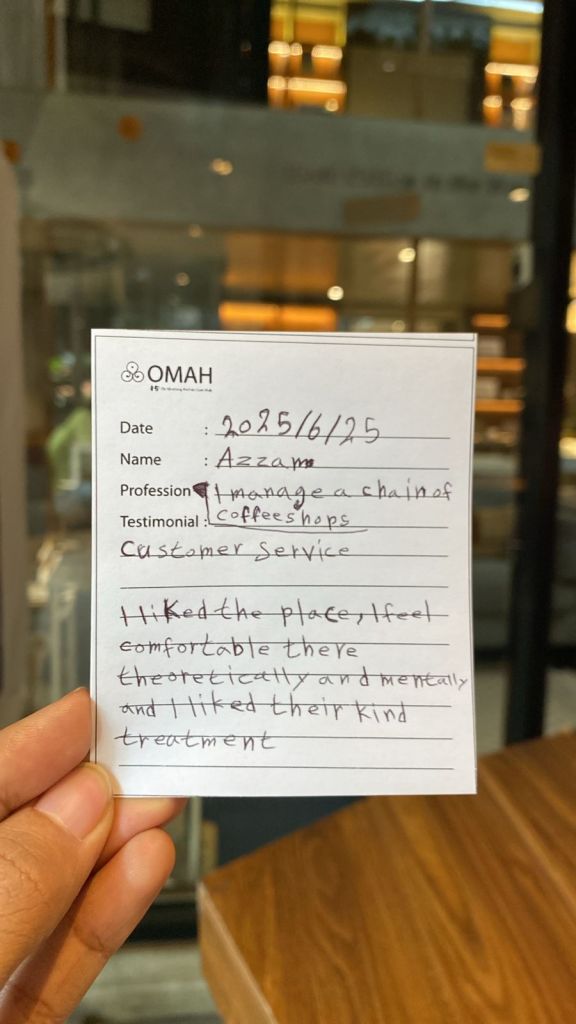 OMAH
Date : 2025/6/25
Name : Azzam
Profession I manage a chain of
Testimonial : coffee shops
Customer Service
I liked the place, I feel
comfortable there
theoretically and mentally
and I liked their kind
treatment